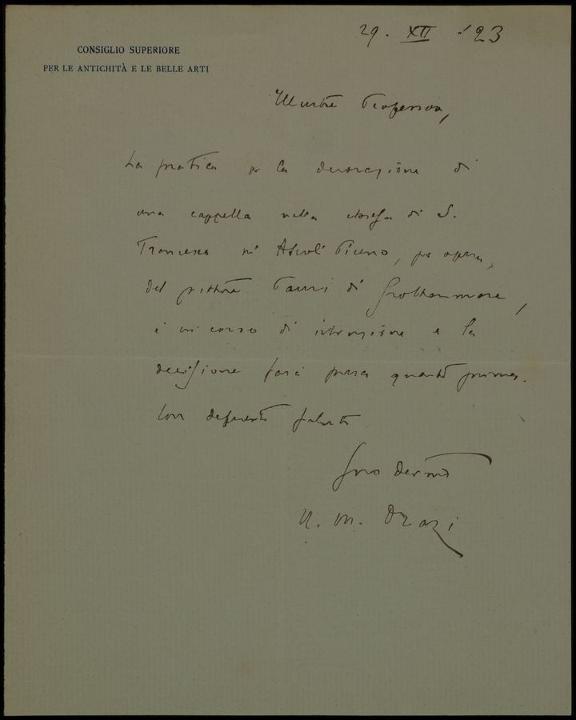 29. XII. '23
CONSIGLIO SUPERIORE
PER LE ANTICHITÀ E LE BELLE ARTI
Illustre Professore,
La pratica per la decorazione di
una cappella nella chiesa di S.
Francesco in Ascoli Piceno, per opera,
del pittore Pauri di Grottammare,
è in corso di istruzione e la
decisione sarà presa quanto prima.
Con distinti saluti
Suo dev.mo
M.